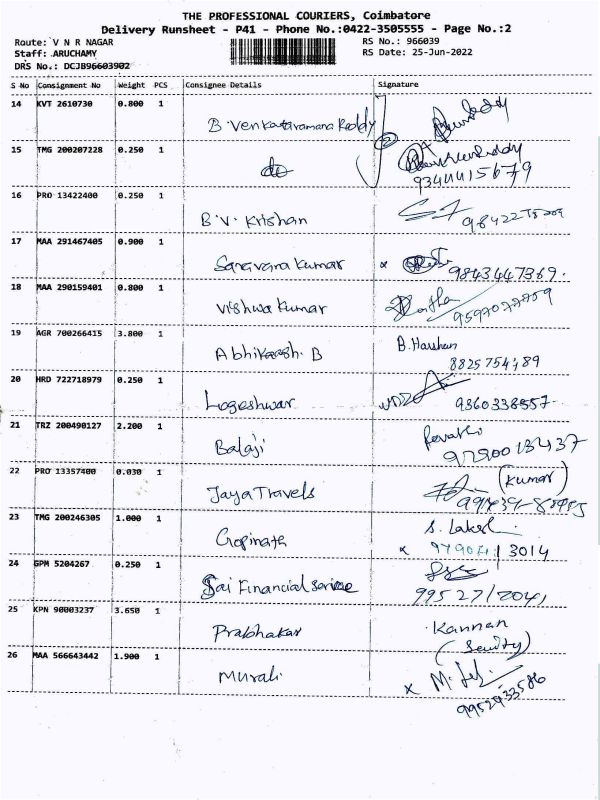 THE PROFESSIONAL COURIERS, Coimbatore
Delivery Runsheet - P41 - Phone No.:0422-3505555 - Page No.:2
Route: V N R NAGAR RS No.: 966039
Staff: ARUCHAMY RS Date: 25-Jun-2022
DRS No.: DCJB96603902
S No Consignment No Weight PCS Consignee Details Signature
14 KVT 2610730 0.800 1
B. Venkataramana Reddy
15 TMG 200207228 0.250 1
do 9344415679
16 PRO 13422400 0.250 1
B.V. Krishan
17 MAA 291467405 0.900 1
Saravana Kumar x 9843447369.
18 MAA 290159401 0.800 1
Vishwa Kumar
19 AGR 700266415 3.800 1
Abhikaesh. B B. Harshan
20 HRD 722718979 0.250 1
Logeshwar 9360338557.
21 TRZ 200490127 2.200 1
Balaji Revathi
9790013437
22 PRO 13357400 0.030 1
Jaya Travels (Kumar)
23 TMG 200246305 1.000 1
Gopinath S. Laksh
24 GPM 5204267 0.250 1
Sai Financial Service
25 KPN 90003237 3.650 1
Prabhakar Kannan
26 MAA 566643442 1.900 1
Murali x M.
9952933586